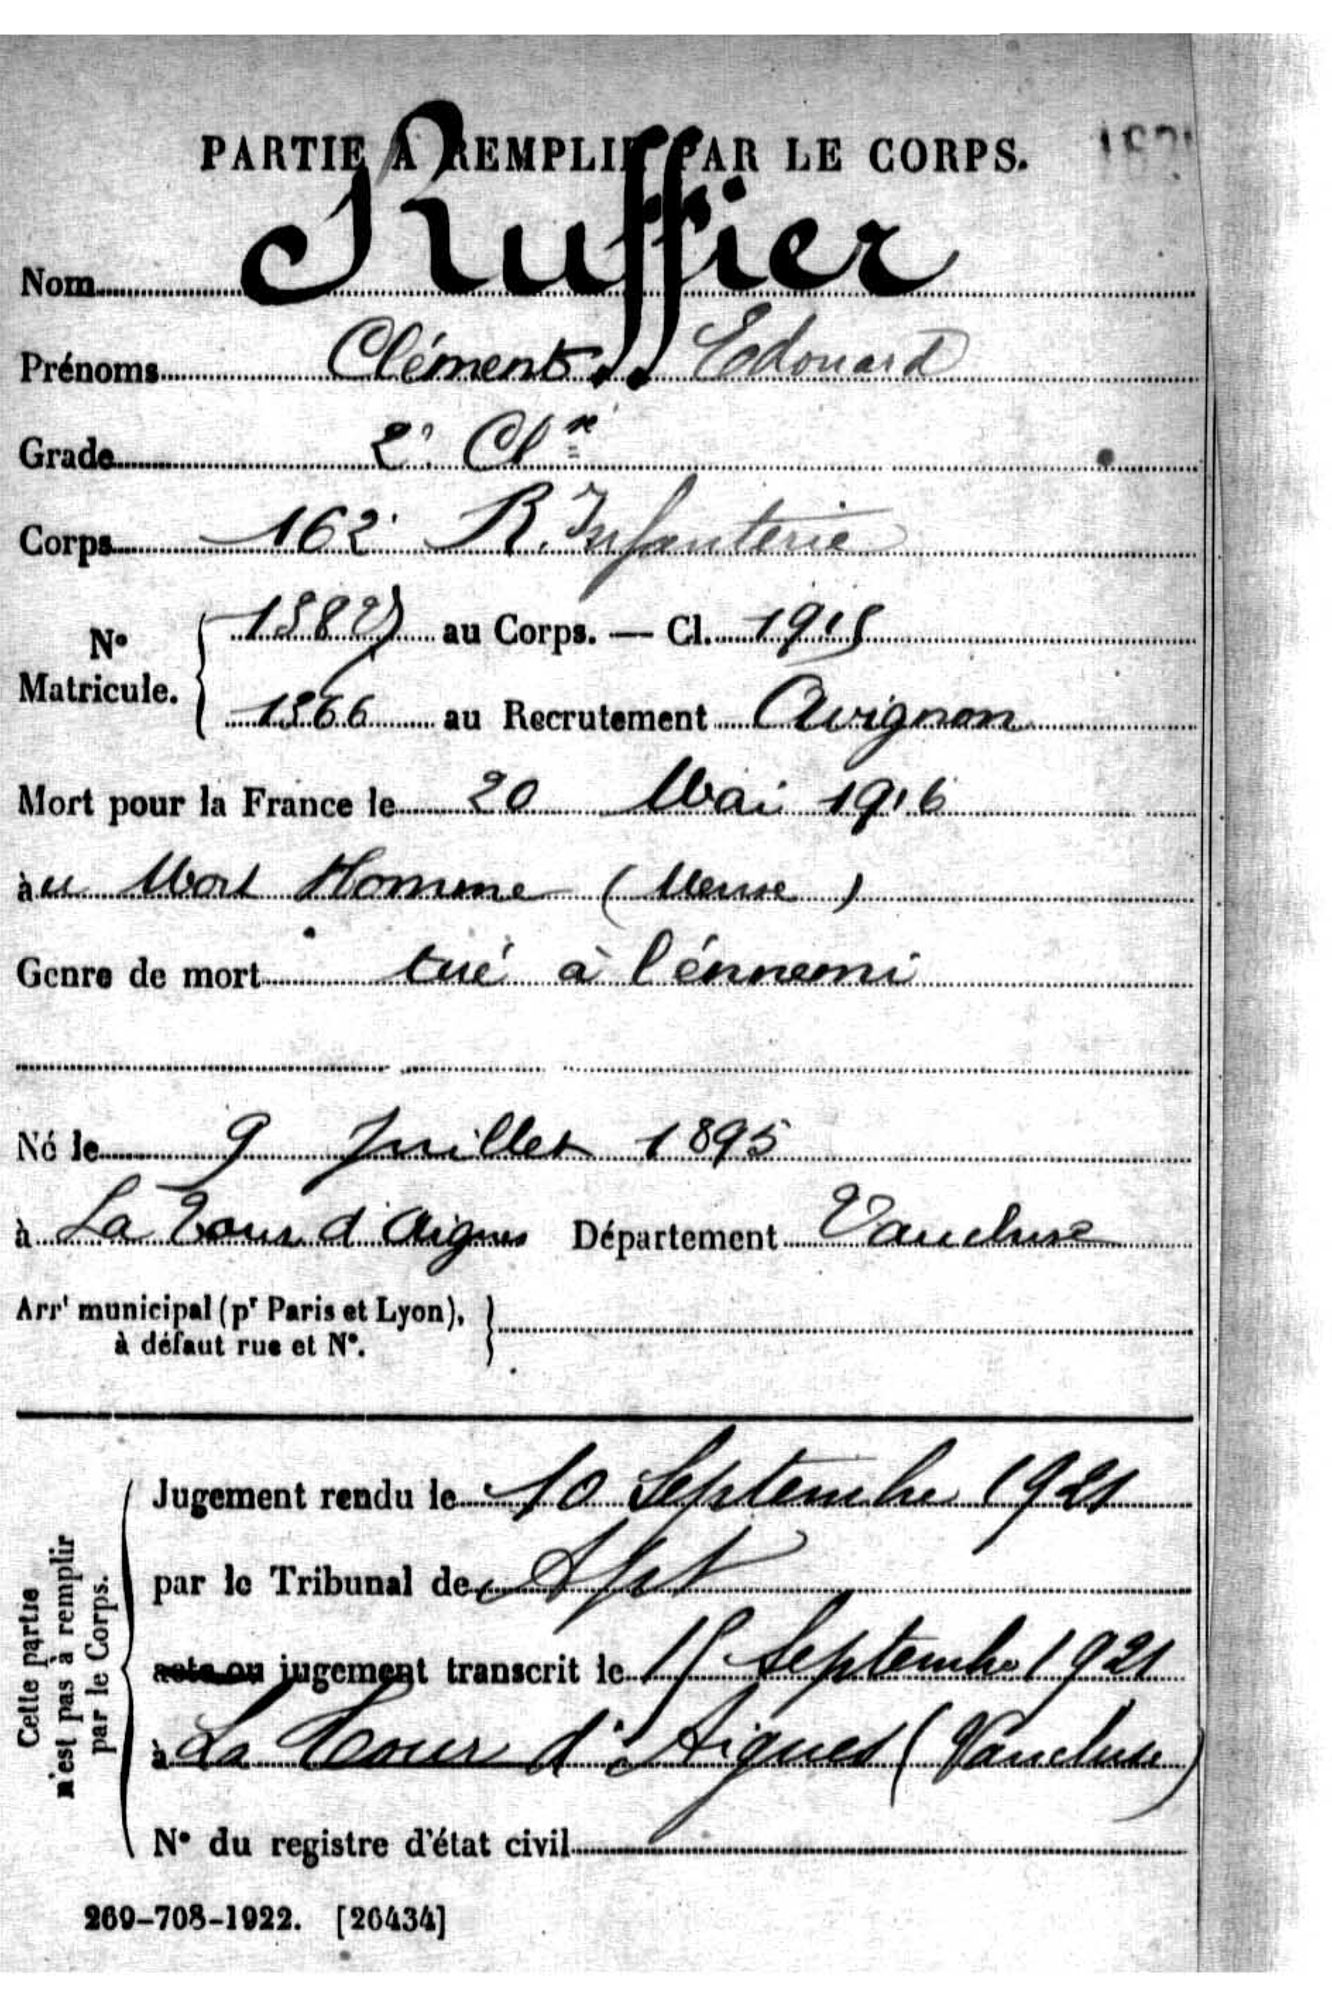 PARTIE A REMPLIR PAR LE CORPS.
Nom Ruffier
Prénoms Clément Edouard
Grade 2e Clse
Corps 162e R. Infanterie
N° Matricule. { au Corps. — Cl. 1915
1366 au Recrutement Avignon
Mort pour la France le 20 Mai 1916
àu Mort Homme (Meuse)
Genre de mort tué à l'énnemi
Né le 9 Juillet 1895
à La Tour d'Aigues Département Vaucluse
Arrt municipal (pr Paris et Lyon), à défaut rue et N°. }
Cette partie n'est pas à remplir par le Corps.
Jugement rendu le 10 Septembre 1921
par le Tribunal de Apt
acte ou jugement transcrit le 15 Septembre 1921
à La Tour d'Aigues (Vaucluse)
N° du registre d'état civil
269-708-1922. [26434]